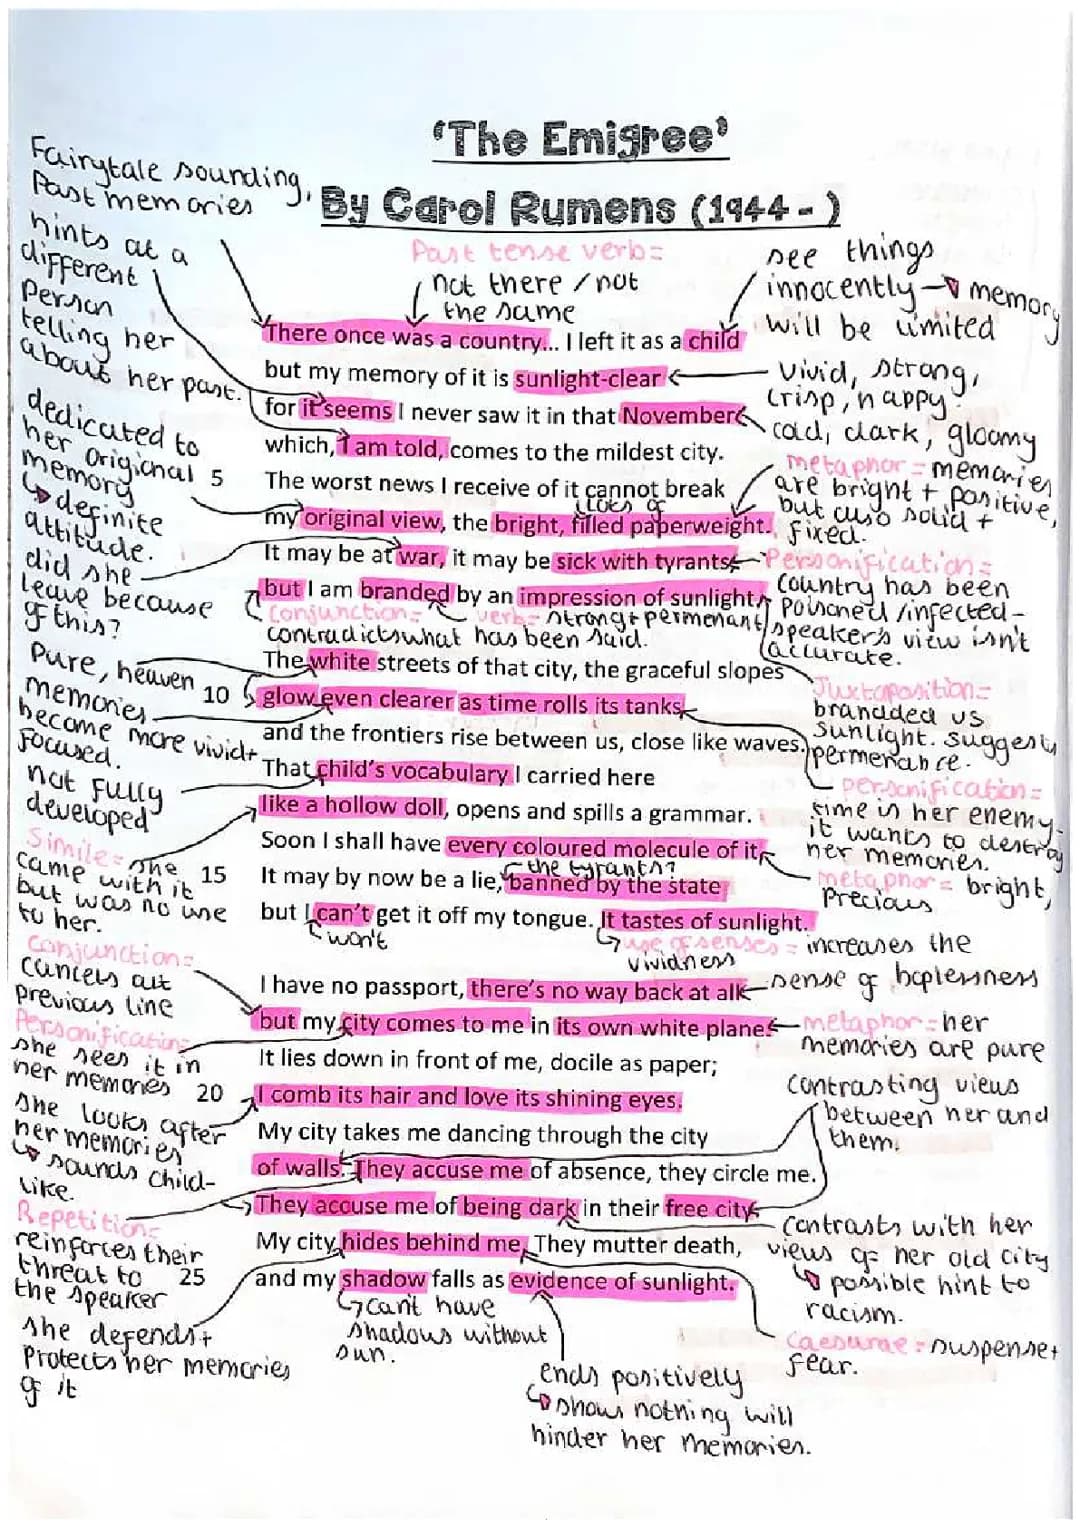 'The Emigree'
By Carol Rumens (1944 - )
Fairytale sounding,
Past memories
hints at a
different
Person
telling her
about her past.
Past tense verb=
not there / not
the same
see things
innocently → memory
will be limited
There once was a country... I left it as a child
but my memory of it is sunlight-clear
vivid, strong,
crisp, happy
for it seems I never saw it in that November
cold, dark, gloomy
which, I am told, comes to the mildest city.
dedicated to
her origional
memory
↳ definite
attitude.
5
The worst news I receive of it cannot break
lots of
my original view, the bright, filled paperweight.
metaphor = memories
are bright + positive,
but also solid +
fixed.
It may be at war, it may be sick with tyrants,
did she
leave because
of this?
Personification=
country has been
poisoned/infected-
speaker's view isn't
accurate.
but I am branded by an impression of sunlight.
Conjunction=
contradicts what has been said.
verb= strong + permenant
The white streets of that city, the graceful slopes
Pure, heaven
10
glow even clearer as time rolls its tanks
memories
become more vivid +
focused.
Juxtaposition=
branded vs
sunlight. suggests
permenance.
and the frontiers rise between us, close like waves.
That child's vocabulary I carried here
not fully
developed
personification=
time is her enemy-
it wants to destroy
her memories.
like a hollow doll, opens and spills a grammar.
Simile= she
came with it
but was no use
to her.
Soon I shall have every coloured molecule of it.
metaphor= bright,
Precious
the tyrants?
15
It may by now be a lie, banned by the state
but I can't get it off my tongue. It tastes of sunlight.
↳ won't
↳ use of senses = increases the
vividness
I have no passport, there's no way back at all
sense of hoplessness
Conjunction=
cancels out
previous line
but my city comes to me in its own white plane.
metaphor= her
memories are pure
Personification=
she sees it in
her memories
It lies down in front of me, docile as paper;
20
I comb its hair and love its shining eyes.
she looks after
her memories
↳ sounds child-
like.
My city takes me dancing through the city
contrasting views
between her and
them.
of walls. They accuse me of absence, they circle me.
They accuse me of being dark in their free city.
Repetition=
reinforces their
threat to
the speaker
contrasts with her
views of her old city
↳ possible hint to
racism.
My city hides behind me. They mutter death,
25
and my shadow falls as evidence of sunlight.
she defends +
Protects her memories
of it
↳ can't have
shadows without
sun.
Caesurae = suspense +
fear.
ends positively
↳ shows nothing will
hinder her memories.